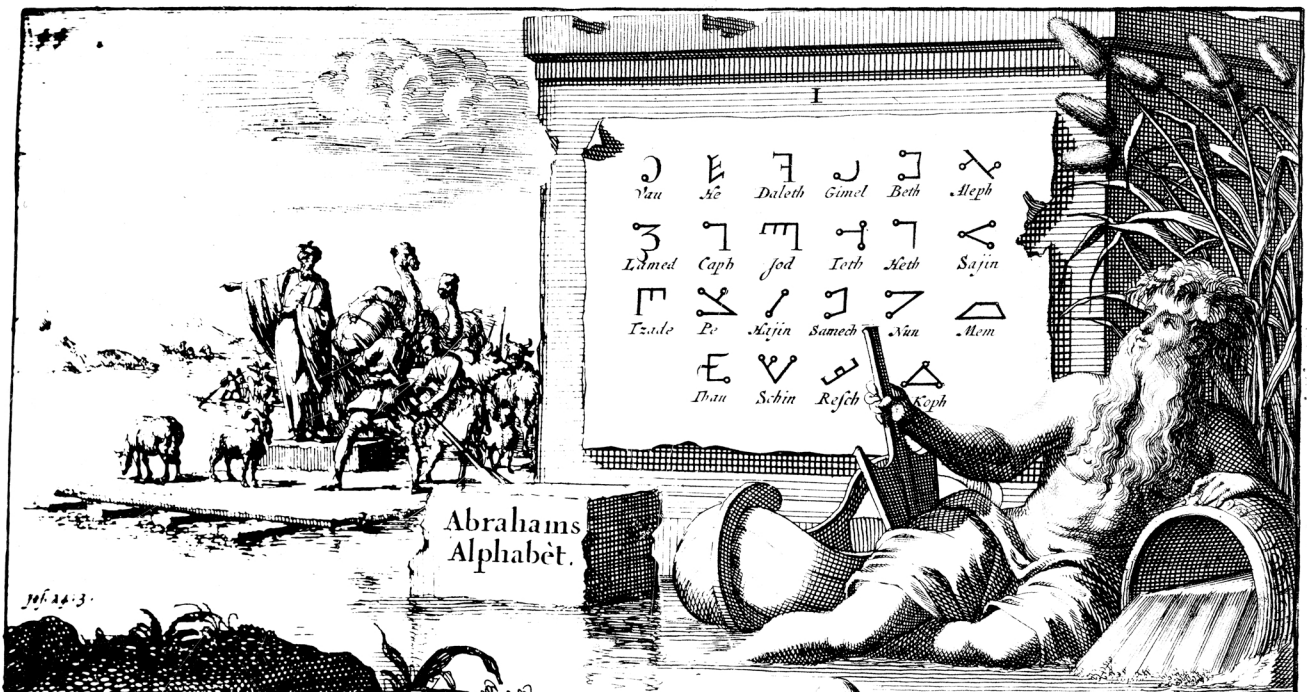 I
Vau He Daleth Gimel Beth Aleph
Lamed Caph Jod Teth Heth Sajin
Tzade Pe Hajin Samech Nun Mem
Thau Schin Resch Koph
Abrahams
Alphabèt.
Jos. 24:3.